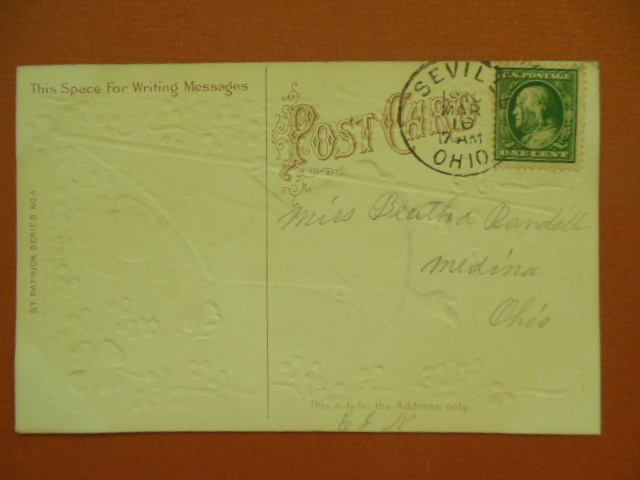 This Space For Writing Messages
POST CARD
SEVILLE
MAR
16
7 AM
OHIO
U.S. POSTAGE
ONE CENT
Miss Beatha Randall
Medina
Ohio
ST. PATRICK SERIES NO. 4
This side for the Address only
E J N